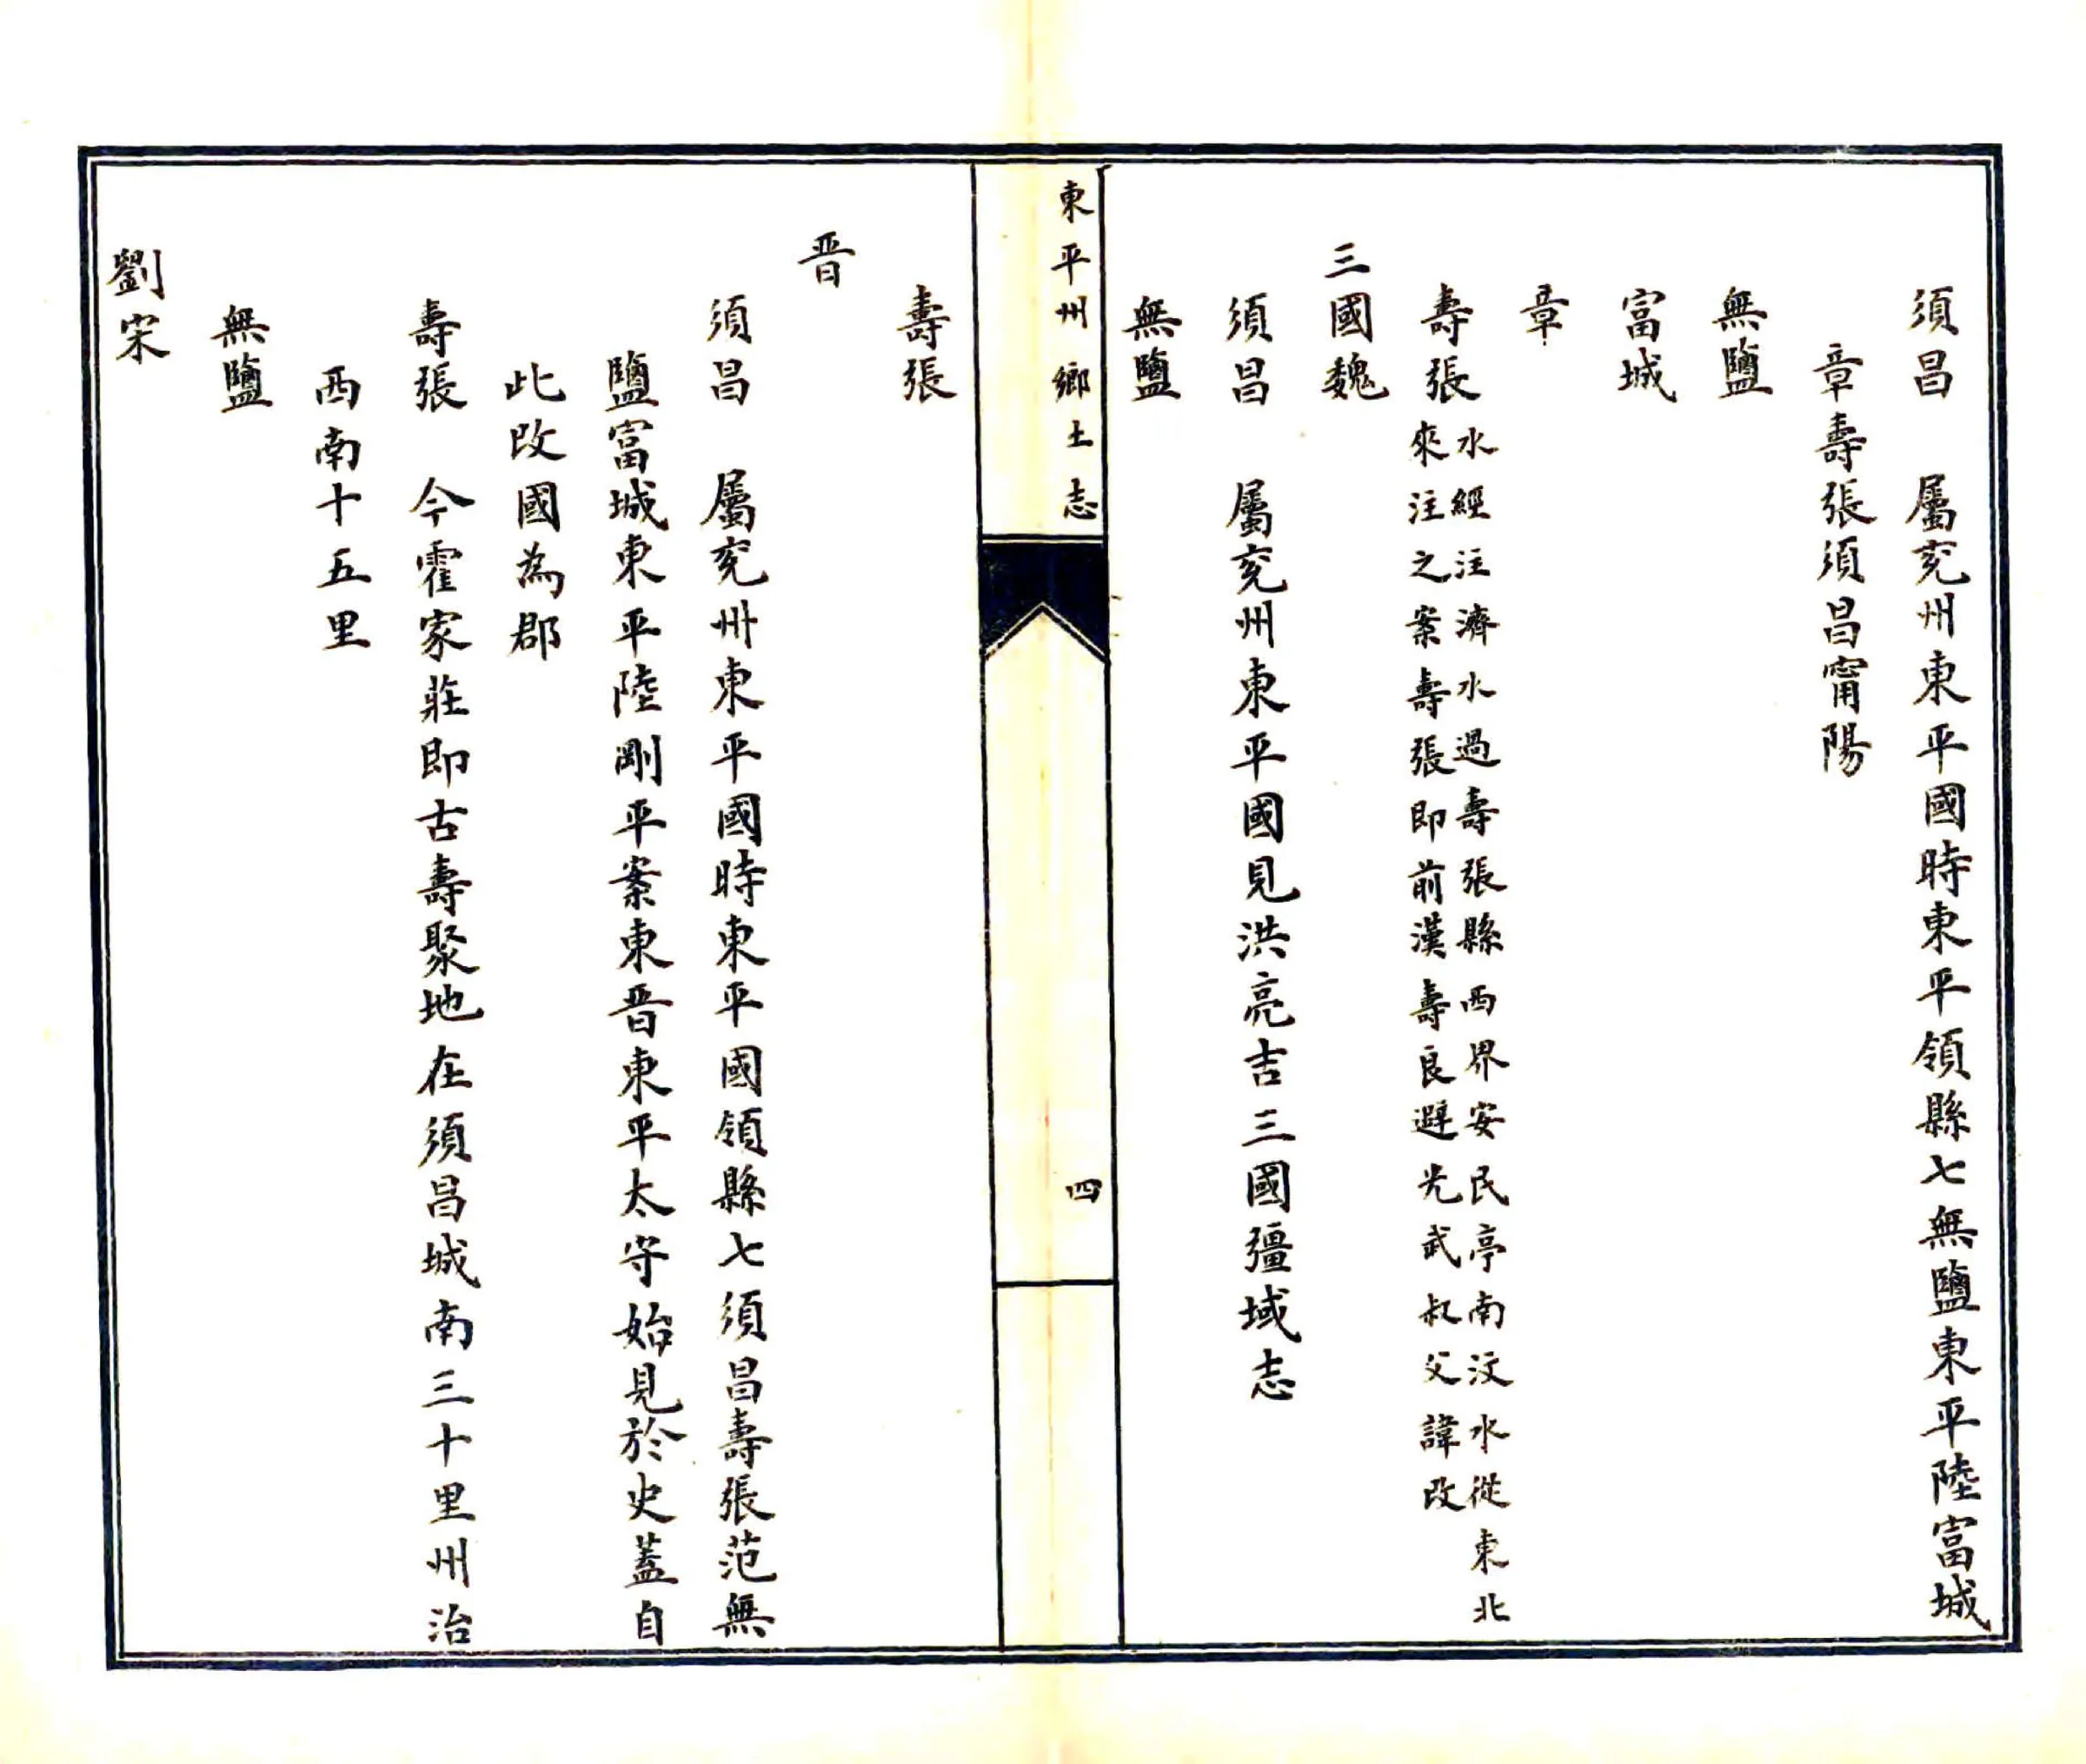 須昌　屬兖州東平國時東平領縣七無鹽東平陸富城
章壽張須昌甯陽
無鹽
富城
章
壽張水經注濟水過壽張縣西界安民亭南汶水從東北
來注之案壽張即前漢壽良避光武叔父諱改
三國魏
須昌　屬兖州東平國見洪亮吉三國疆域志
無鹽
東平州鄉土志
四
壽張
晋
須昌　屬兖州東平國時東平國領縣七須昌壽張范無
鹽富城東平陸剛平案東晋東平太守始見於史蓋自
此改國為郡
壽張　今霍家莊即古壽聚地在須昌城南三十里州治
西南十五里
無鹽
劉宋